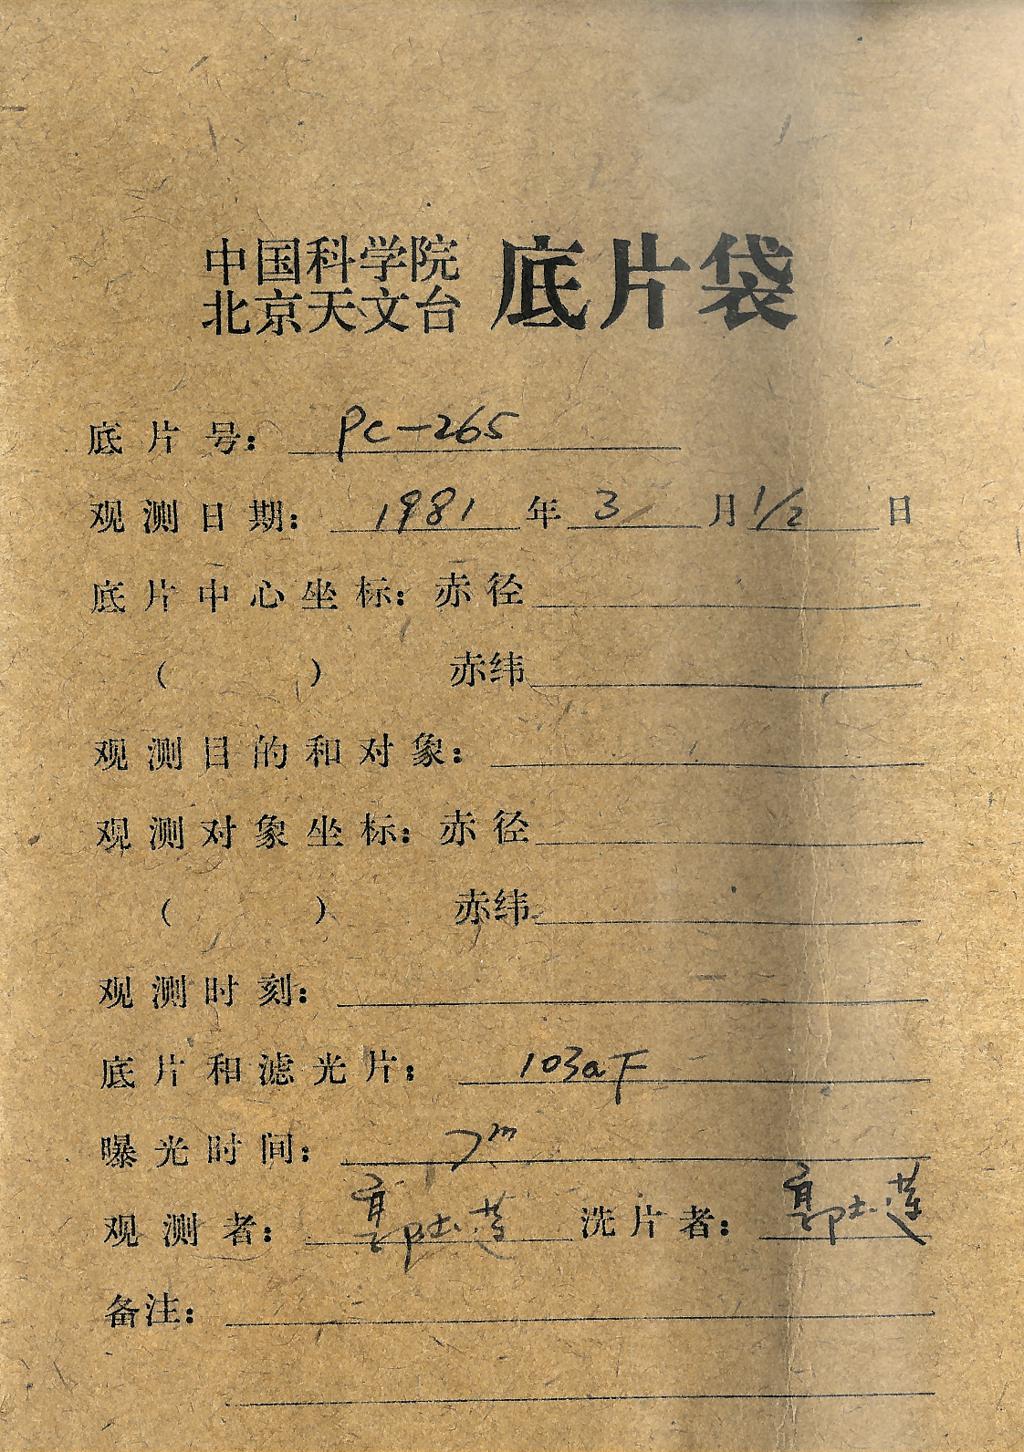 中国科学院
北京天文台 底片袋
底片号： PC-265
观测日期： 1981 年 3 月 1/2 日
底片中心坐标：赤径
（ ） 赤纬
观测目的和对象：
观测对象坐标：赤径
（ ） 赤纬
观测时刻：
底片和滤光片： 103aF
曝光时间： 7m
观测者： 郭玉莲 洗片者： 郭玉莲
备注：